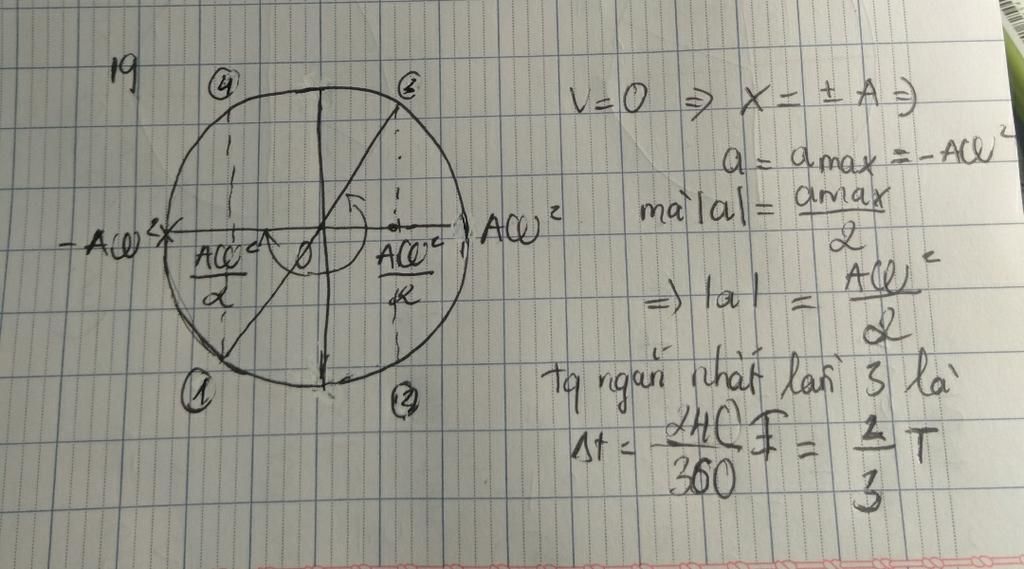 19
④ ③
-Aω² Aω²/2 O Aω²/2 Aω²
① ②
V = 0 ⇒ X = ± A ⇒
a = amax = -Aω²
mà |a| = amax/2
⇒ |a| = Aω²/2
tg ngắn nhất lần 3 là
Δt = 240/360 T = 2/3 T